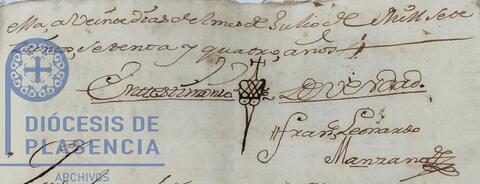 Ma, a Veinte dias de el mes de Julio de Mill Sete
cientos, Setenta y quatro, años
En testimonio de Verdad.
Fran.co Leonardo
Manzano
DIÓCESIS DE
PLASENCIA
ARCHIVOS